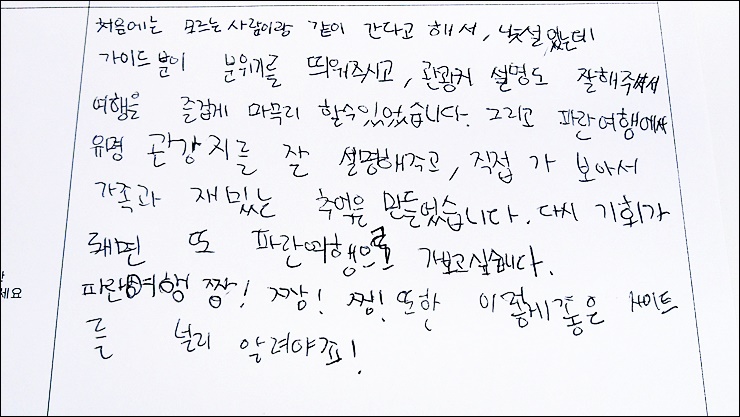 처음에는 모르는 사람이랑 같이 간다고 해서, 낯설었는데
가이드 분이 분위기를 띄워주시고, 관광거 설명도 잘해주셔서
여행을 즐겁게 마무리 할수있었습니다. 그리고 파란여행에서
유명 관강지를 잘 설명해주고, 직접 가 보아서
가족과 재밌는 추억을 만들었습니다. 다시 기회가
돼면 또 파란여행으로 가보고싶습니다.
파란여행 짱! 짱! 짱! 또한 이렇게좋은 사이트
를 널리 알려야죠!
세요